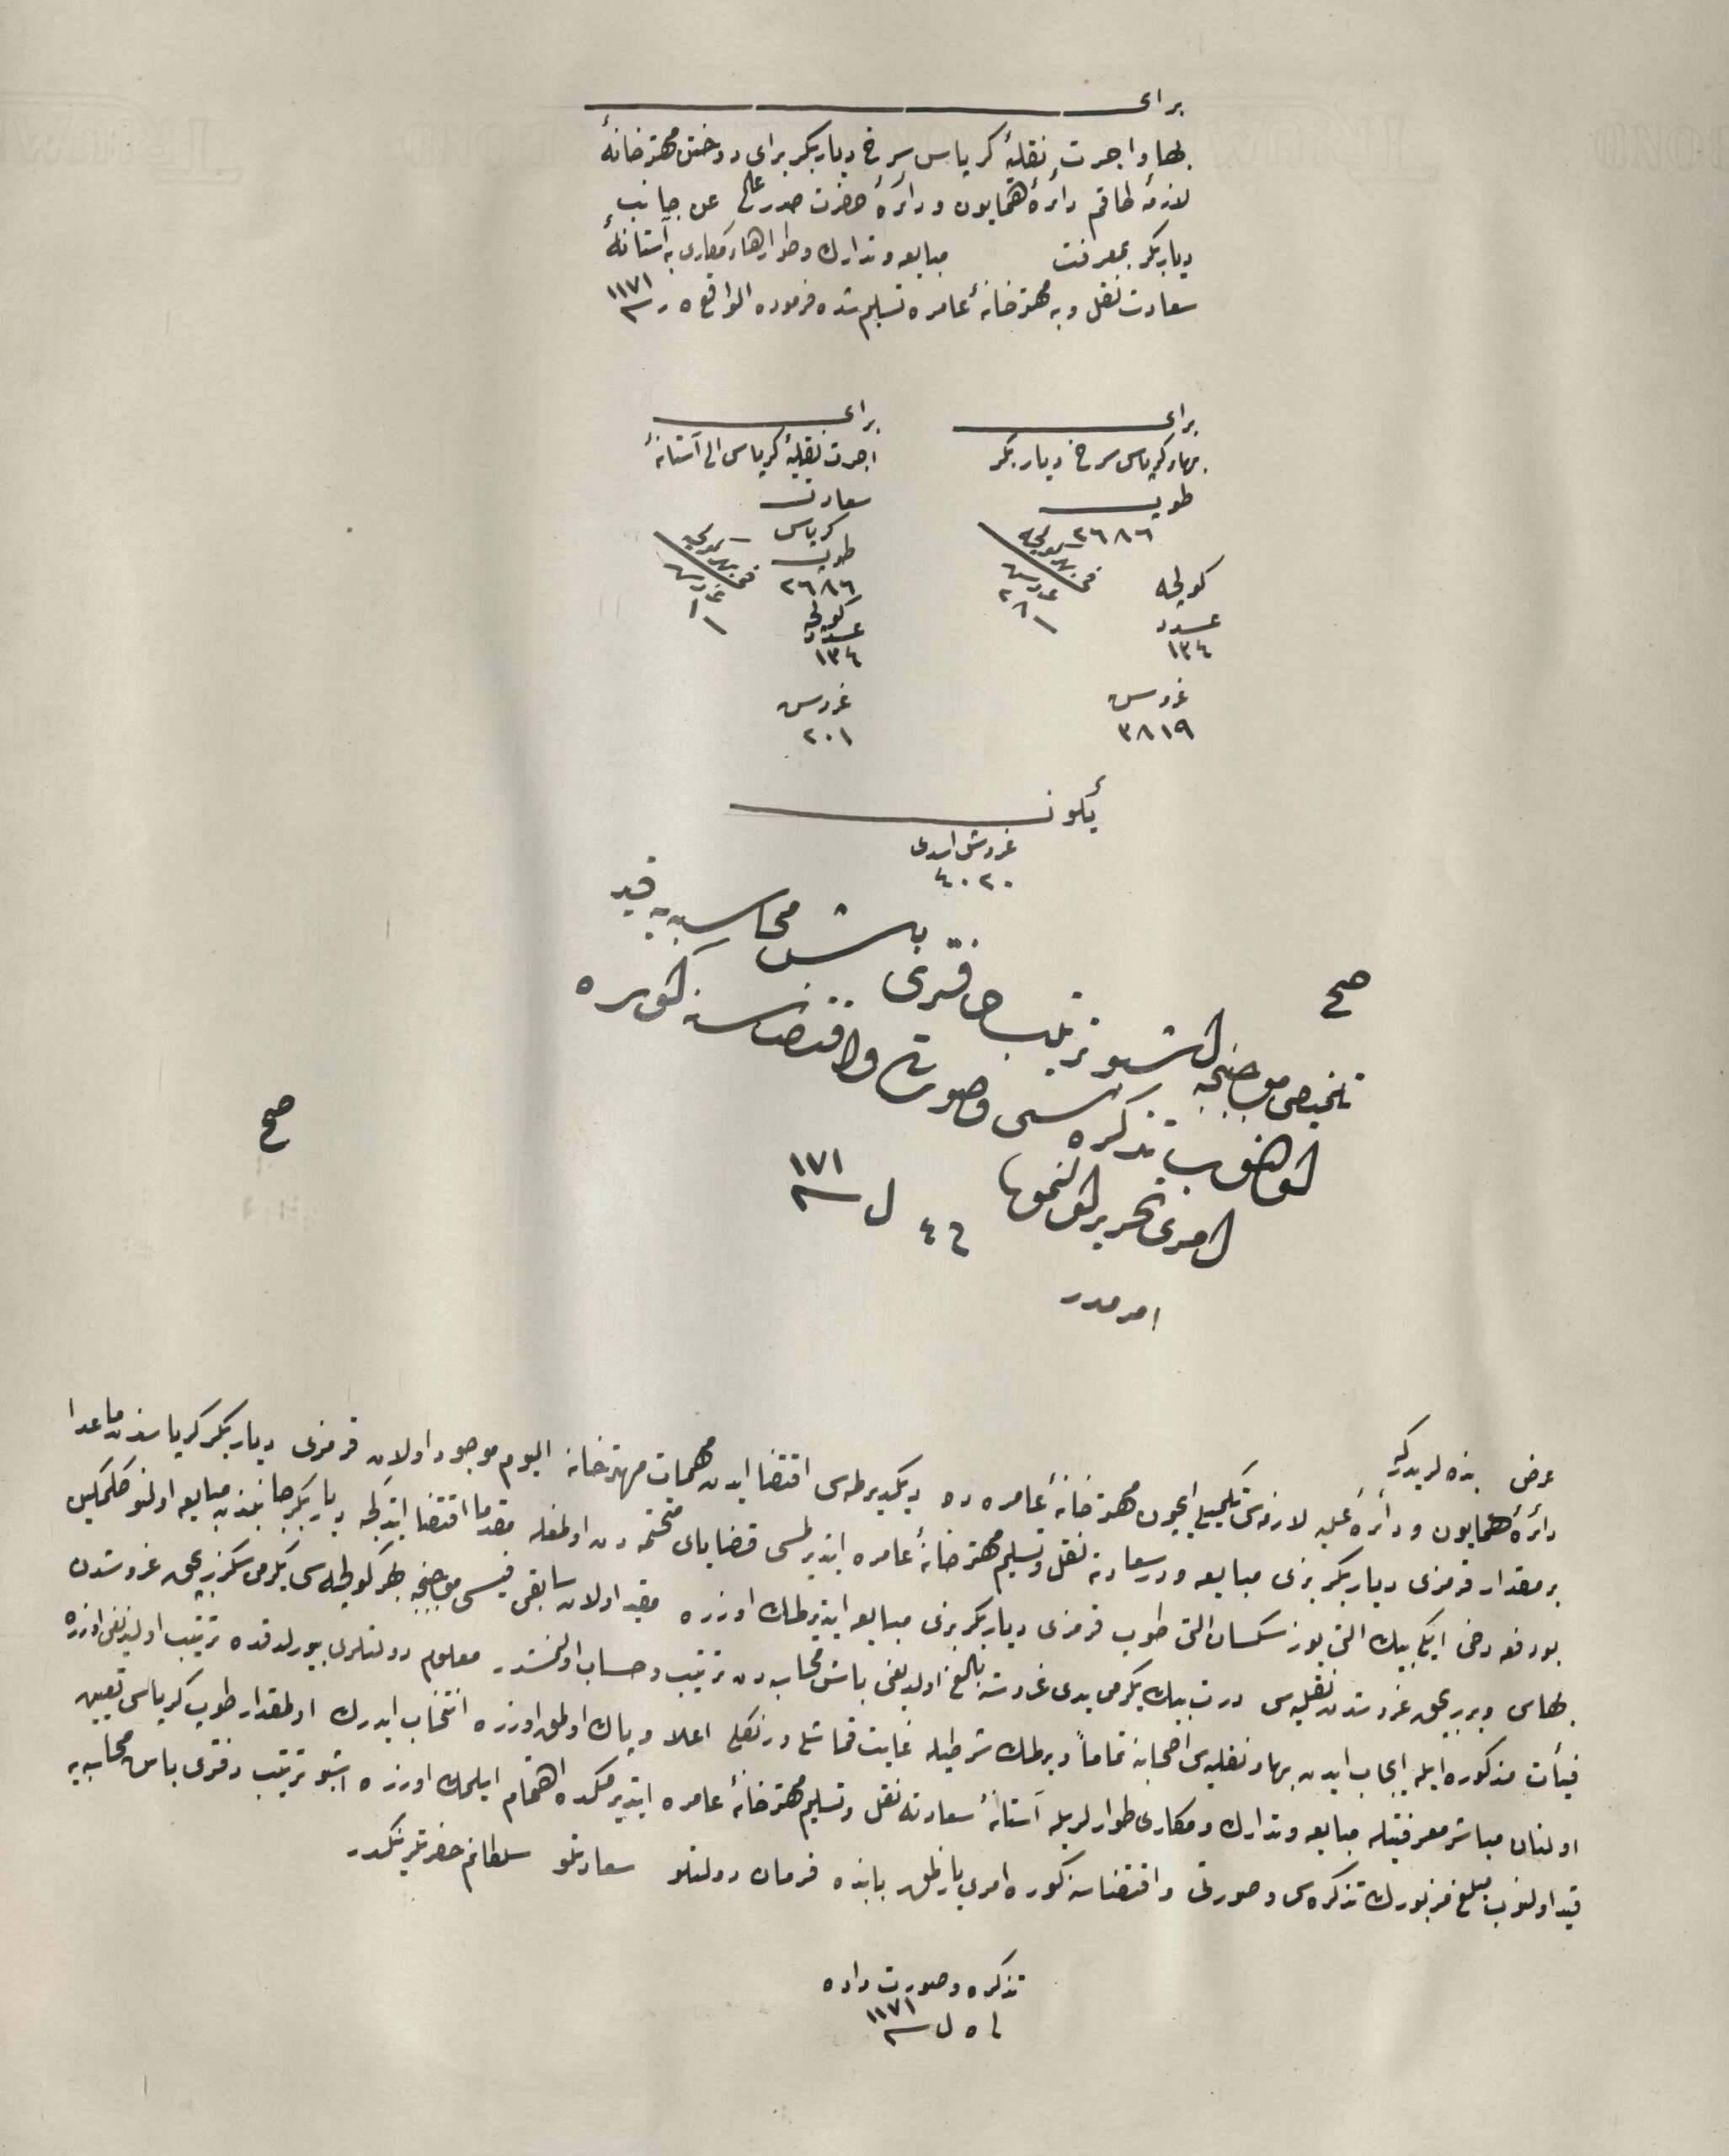 برای
بها و اجرت نقلیهٔ کرپاس سرخ دیاربکر برای دوختن مهترخانهٔ
لازمهٔ طاقم دائرهٔ همایون و دائرهٔ حضرت صدر عالی عن جانب
دیاربکر بمعرفت مبایعه و تدارک و طوارهاء مکاری به آستانهٔ
سعادت نقل و به مهترخانهٔ عامره تسلیم شده فرموده الواقع ه ر سنه ١١٧١
برای
بهاء کرپاس سرخ دیاربکر
طوپ
٢٦٨٦
کولچه
عدد
١٣٤
فی بهر کولچه
غروش
٢٨
غروش
٣٨١٩
برای
اجرت نقلیهٔ کرپاس الی آستانهٔ
سعادت
کرپاس
طوپ
٢٦٨٦
کولچه
عدد
١٣٤
فی بهر کولچه
غروش
١
غروش
٢٠١
یکون
غروش اسدی
٤٠٢٠
صح
تلخیصی موجبنجه اشبو ترتیب دفتری باش محاسبه‌یه قید
اولنوب تذکره‌سی و صورتی و اقتضاسنه کوره
امری تحریر اولنمق
٢٤ ل سنه ١٧١
صح
امر مدر
عرض بنده‌لریدرکه
دائرهٔ همایون و دائرهٔ علیه لازمه‌سی تکمیلی ایچون مهترخانهٔ عامره‌ده دیکدیرلمسی اقتضا ایدن مهمات مهترخانه الیوم موجود اولان قرمزی دیاربکر کرپاسندن ماعدا
بر مقدار قرمزی دیاربکر بزی مبایعه و درسعادته نقل و تسلیم مهترخانهٔ عامره ایتدیرلمسی قضایای متحتمه‌دن اولمغله مقدما اقتضا ایتدکجه دیاربکر جانبندن مبایعه اولنه‌کلمکلین
بو دفعه دخی ایکی بیک التی یوز سکسان التی طوپ قرمزی دیاربکر بزی مبایعه ایتدیرلمک اوزره مقید اولان سابقی فیسی موجبنجه بهر کولچه‌سی یکرمی سکزر بچق غروشدن
بهاسی و برر بچق غروشدن نقلیه‌سی درت بیک یکرمی غروشه بالغ اولدیغی باش محاسبه‌دن ترتیب و حساب اولنمشدر معلوم دولتلری بیورلدقده ترتیب اولندیغی اوزره
فیأت مذکوره ایله ایجاب ایدن بها و نقلیه‌سی اصحابنه تماماً ویرلمک شرطیله غایت قماشلی و رنکلی اعلا و پاک اولمق اوزره انتخاب ایدرک اولمقدار طوپ کرپاسی تعیین
اولنان مباشر معرفتیله مبایعه و تدارک و مکاری طوارلریله آستانهٔ سعادته نقل و تسلیم مهترخانهٔ عامره ایتدیرمکده اهتمام ایلمک اوزره اشبو ترتیب دفتری باش محاسبه‌یه
قید اولنوب مبلغ مزبورک تذکره‌سی و صورتی و اقتضاسنه کوره امری یازلمق بابنده فرمان دولتلو سعادتلو سلطانم حضرتلرینکدر
تذکره و صورت داده
ل سنه ١١٧١